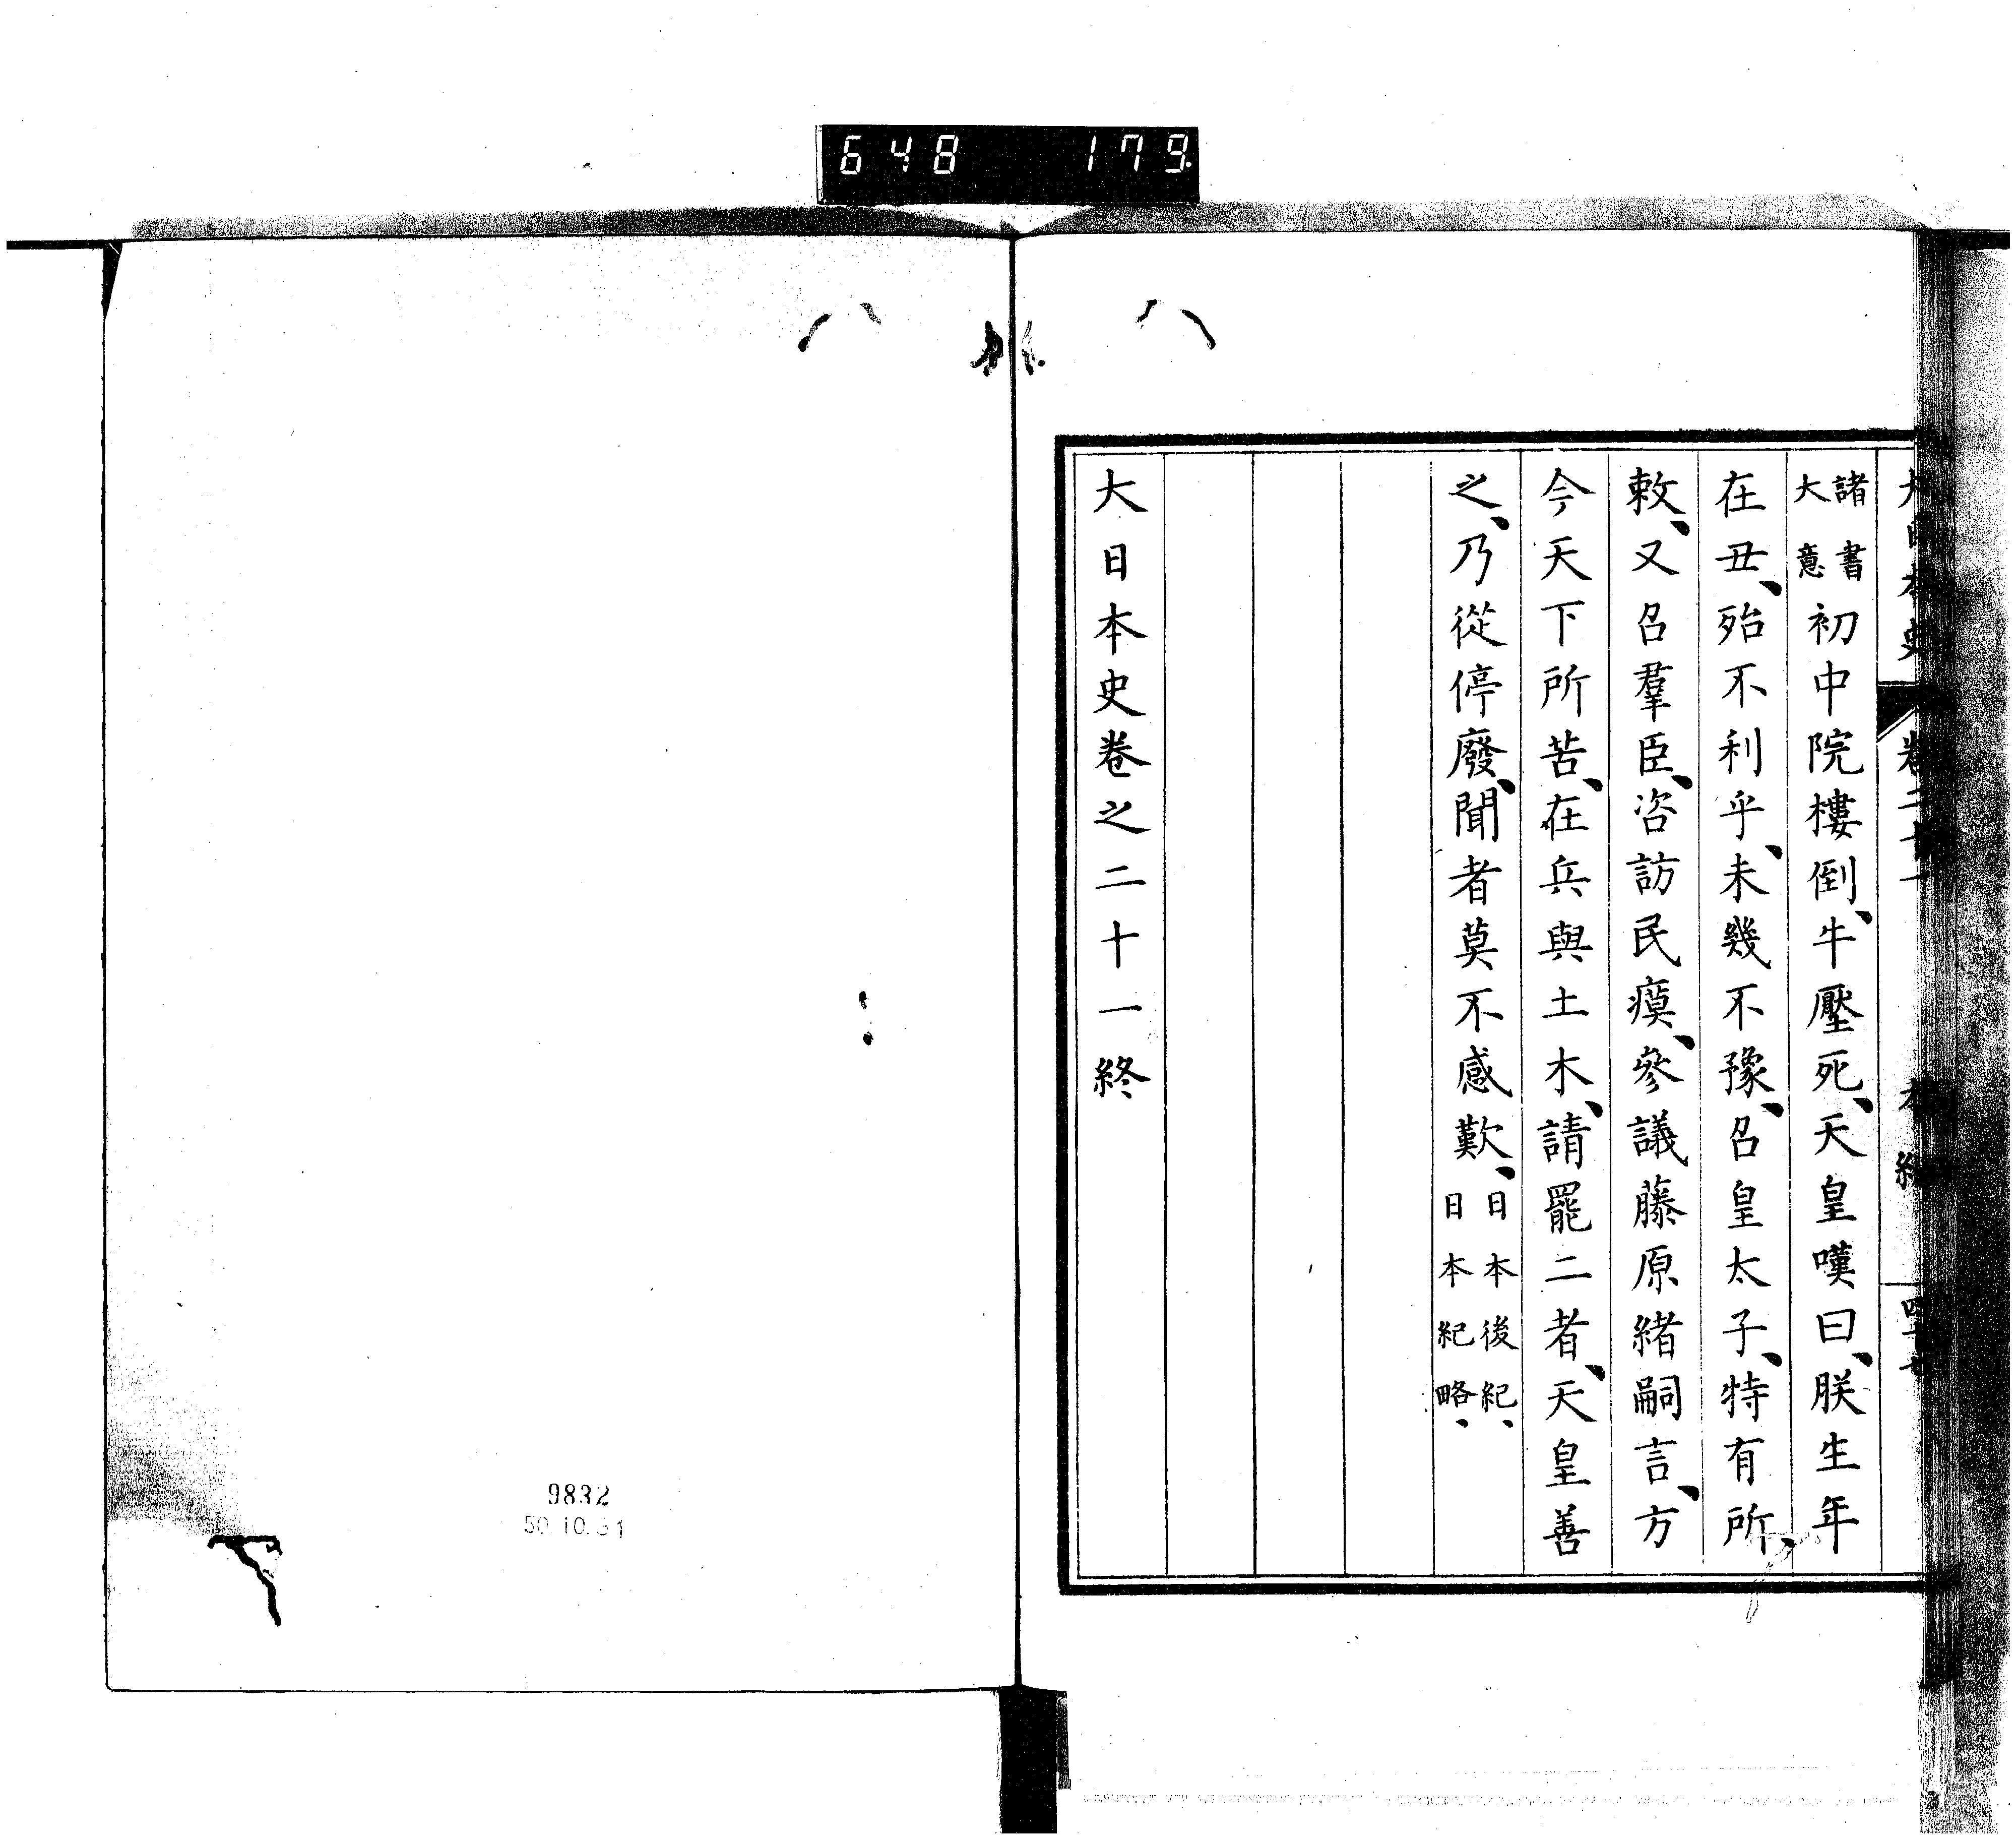 648 179
大日本史 卷二十一 本紀 四十七
諸書大意初中院樓倒、牛壓死、天皇嘆曰、朕生年
在丑、殆不利乎、未幾不豫、召皇太子、特有所、
敕、又召羣臣、咨訪民瘼、參議藤原緒嗣言、方
今天下所苦、在兵與土木、請罷二者、天皇善
之、乃從停廢、聞者莫不感歎、日本後紀、日本紀略、
大日本史卷之二十一終
9832
50.10.31